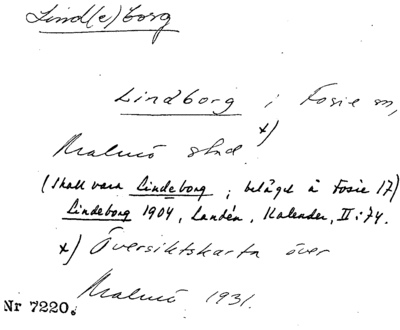 Lind(e)borg
Lindborg i Fosie sn,
x)
Malmö stad.
(Skall vara Lindeborg; beläget å Fosie 17)
Lindeborg 1904, Landén, Kalender, II:74.
x) Översiktskarta över
Malmö 1931.
Nr 7220.